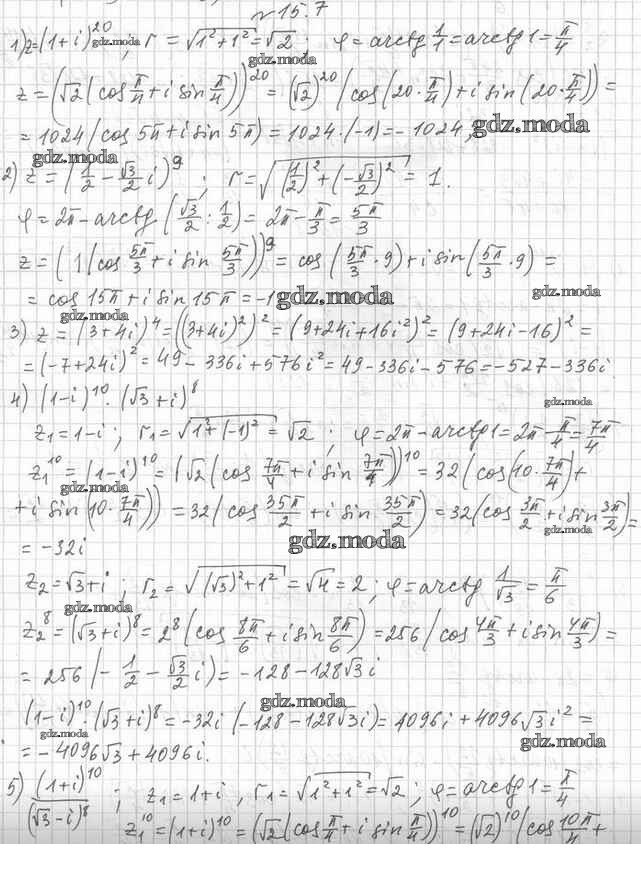 № 15.7
1) z = (1+i)^20 gdz.moda ; r = √(1²+1²) = √2 ; φ = arctg 1/1 = arctg 1 = π/4
gdz.moda
z = (√2 (cos π/4 + i sin π/4))^20 = (√2)^20 (cos(20·π/4) + i sin(20·π/4)) =
= 1024 (cos 5π + i sin 5π) = 1024·(-1) = -1024; gdz.moda
gdz.moda
2) z = (1/2 - √3/2 i)^9 ; r = √((1/2)² + (-√3/2)²) = 1.
φ = 2π - arctg (√3/2 : 1/2) = 2π - π/3 = 5π/3
z = (1 (cos 5π/3 + i sin 5π/3))^9 = cos (5π/3 · 9) + i sin (5π/3 · 9) =
= cos 15π + i sin 15π = -1 gdz.moda gdz.moda
gdz.moda
3) z = (3+4i)^4 = ((3+4i)²)² = (9+24i+16i²)² = (9+24i-16)² =
= (-7+24i)² = 49 - 336i + 576i² = 49 - 336i - 576 = -527 - 336i.
4) (1-i)^10 · (√3+i)^8 gdz.moda
z₁ = 1-i ; r₁ = √(1²+(-1)²) = √2 ; φ = 2π - arctg 1 = 2π - π/4 = 7π/4
z₁^10 = (1-i)^10 = (√2 (cos 7π/4 + i sin 7π/4))^10 = 32 (cos(10·7π/4) +
gdz.moda
+ i sin (10·7π/4)) = 32 (cos 35π/2 + i sin 35π/2) = 32 (cos 3π/2 + i sin 3π/2) =
gdz.moda gdz.moda
= -32i
z₂ = √3+i ; r₂ = √((√3)²+1²) = √4 = 2 ; φ = arctg 1/√3 = π/6
gdz.moda
z₂^8 = (√3+i)^8 = 2^8 (cos 8π/6 + i sin 8π/6) = 256 (cos 4π/3 + i sin 4π/3) =
= 256 (-1/2 - √3/2 i) = -128 - 128√3 i
gdz.moda
(1-i)^10 · (√3+i)^8 = -32i (-128 - 128√3 i) = 4096i + 4096√3 i² =
gdz.moda gdz.moda
= -4096√3 + 4096i.
5) (1+i)^10/(√3-i)^8 ; z₁ = 1+i , r₁ = √(1²+1²) = √2 ; φ = arctg 1 = π/4
z₁^10 = (1+i)^10 = (√2 (cos π/4 + i sin π/4))^10 = (√2)^10 (cos 10π/4 +